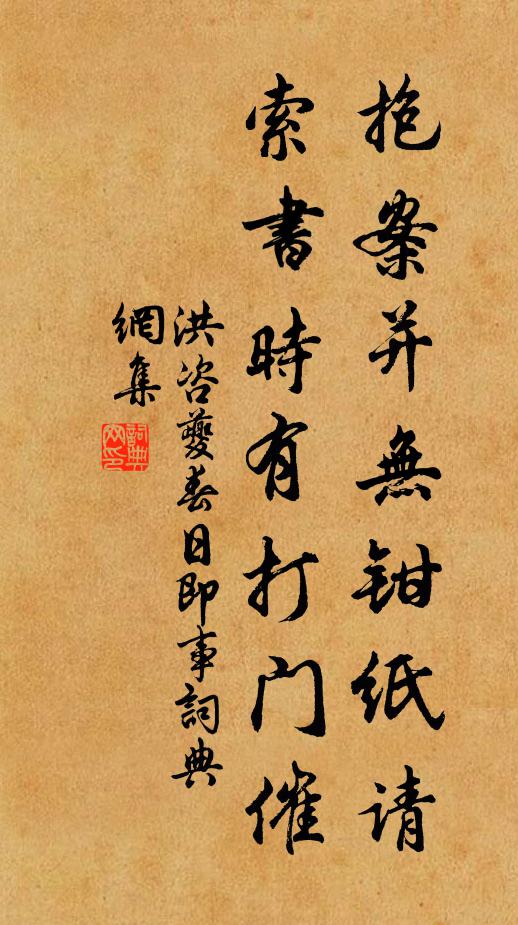 抱案并無鉗纸请
索書時有打门催
洪咨夔春日即事詞典
網集
詞典網印